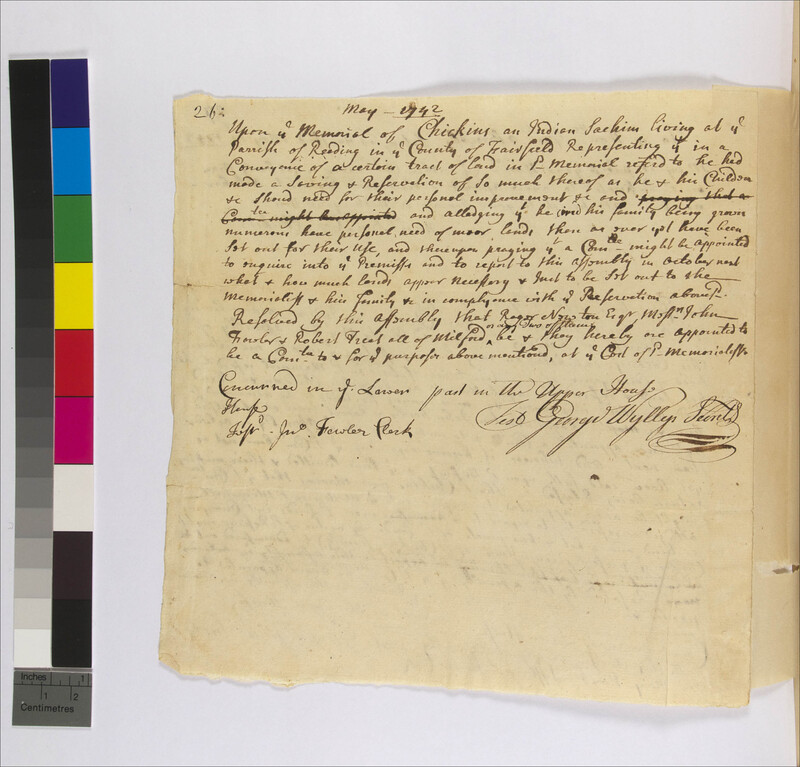 26:
May - 1742
Upon ye Memorial of Chickins an Indian Sachim living at ye
Parrish of Reading in ye County of Fairfield Representing yt in a
Conveyance of a certain tract of land in sd Memorial refer'd to he had
made a Saving & Reservation of so much thereof as he & his Children
&c should need for their personal improvement &c and praying that a
Comtee might be appointed and alledging yt he and his family being grown
numerous have personal need of more lands than as ever yet have been
Set out for their Use, and thereupon praying yt a Comtee might be appointed
to enquire into ye Premisses and to report to this assembly in October next
what & how much lands appear necessary & Just to be Set out to the
Memorialist & his family &c in complyance with ye Reservation abovesd.
Resolved by this Assembly that Roger Newton Esqr, Messrs John
or any Two of them
Fowler & Robert Treat all of Milford, be & they hereby are appointed to
be a Comtee to & for ye purposes above mentioned, at ye Cost of sd Memorialists
Concurred in ye Lower past in the Upper House
House Test George Wyllys Secretry
Test Jno Fowler Clerk
Inches 1
1 2
Centimetres